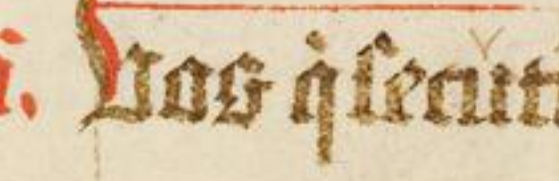 i. Vos qͥ ſecuti